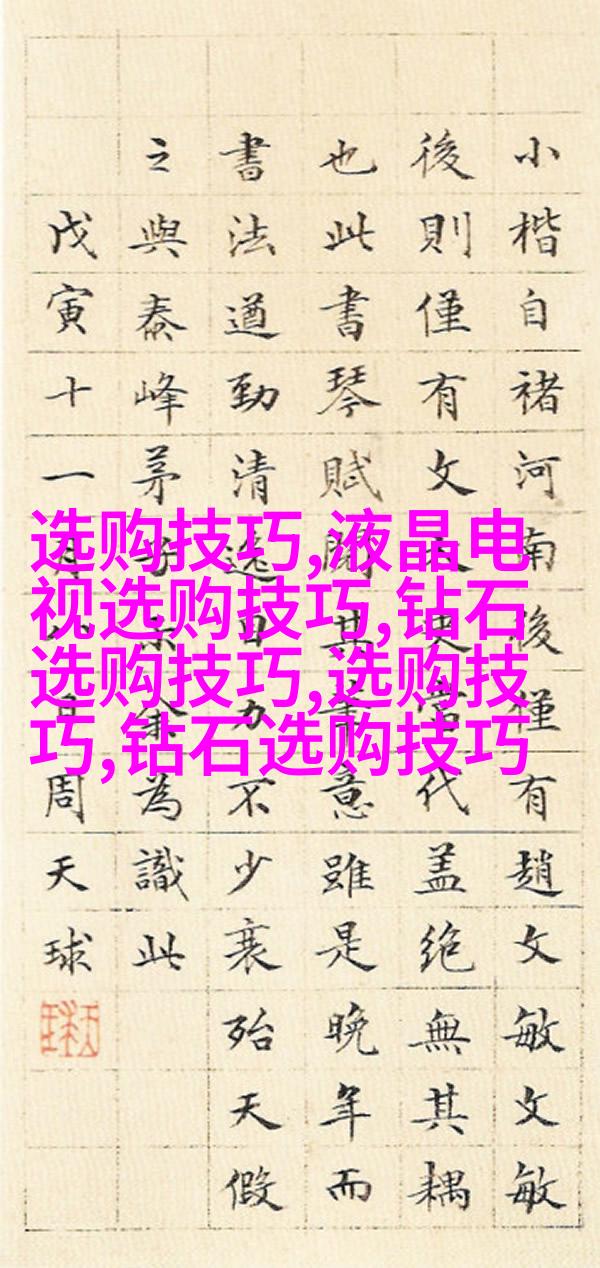 小楷自褚河南後僅有趙文敏文敏
後則僅有文太史當代盖絶無其耦
也此書琴賦其意雖是晚年而
書法遒勁清逸目力不少衰殆天假
之與泰峰茅子示余為識此
戊寅十一月日周天球
选购技巧,液晶电
视选购技巧,钻石
选购技巧,选购技
巧,钻石选购技巧